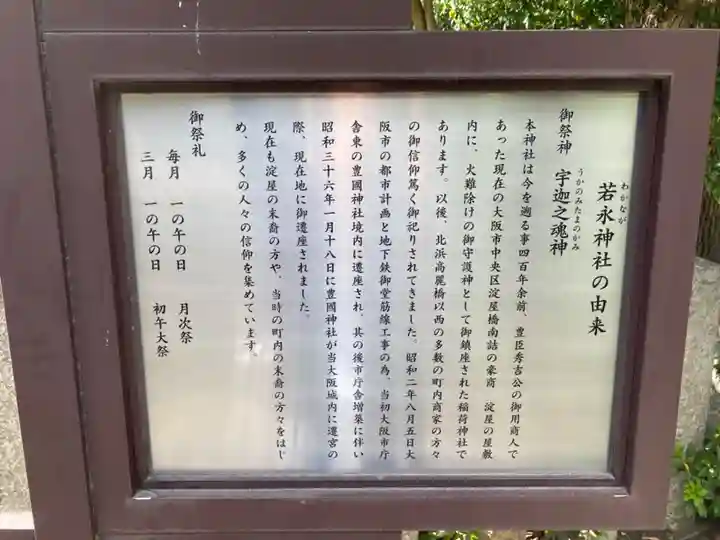 若永神社の由来
わかなが
御祭神 宇迦之魂神
うかのみたまのかみ
本神社は今を遡る事四百年余前、豊臣秀吉公の御用商人で
あった現在の大阪市中央区淀屋橋南詰の豪商 淀屋の屋敷
内に、火難除けの御守護神として御鎮座された稲荷神社で
あります。以後、北浜高麗橋以西の多数の町内商家の方々
の御信仰篤く御祀りされてきました。昭和二年八月五日大
阪市の都市計画と地下鉄御堂筋線工事の為、当初大阪市庁
舎東の豊國神社境内に遷座され、其の後市庁舎増築に伴い
昭和三十六年一月十八日に豊國神社が当大阪城内に遷宮の
際、現在地に御遷座されました。
現在も淀屋の末裔の方や、当時の町内の末裔の方々をはじ
め、多くの人々の信仰を集めています。
御祭礼
毎月 一の午の日 月次祭
三月 一の午の日 初午大祭